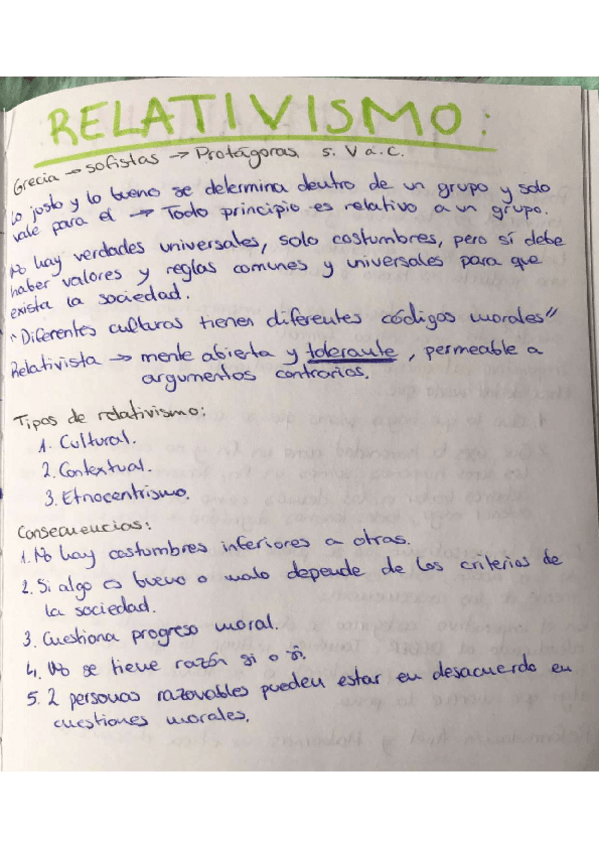 RELATIVISMO:
Grecia → sofistas → Protágoras. s. V a.C.
Lo justo y lo bueno se determina dentro de un grupo y solo
vale para el → Todo principio es relativo a un grupo.
No hay verdades universales, solo costumbres, pero sí debe
haber valores y reglas comunes y universales para que
exista la sociedad.
"Diferentes culturas tienen diferentes códigos morales"
Relativista → mente abierta y tolerante, permeable a
argumentos contrarios.
Tipos de relativismo:
1. Cultural.
2. Contextual.
3. Etnocentrismo.
Consecuencias:
1. No hay costumbres inferiores a otras.
2. Si algo es bueno o malo depende de los criterios de
la sociedad.
3. Cuestiona progreso moral.
4. No se tiene razón si o
5. 2 personas razonables pueden estar en desacuerdo en
cuestiones morales.